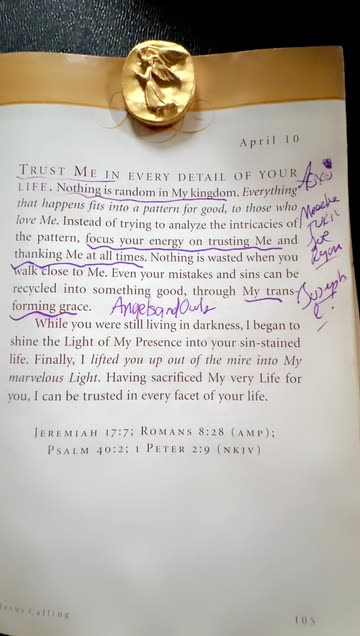 April 10
TRUST ME IN EVERY DETAIL OF YOUR
LIFE. Nothing is random in My kingdom. Everything
that happens fits into a pattern for good, to those who
love Me. Instead of trying to analyze the intricacies of
the pattern, focus your energy on trusting Me and
thanking Me at all times. Nothing is wasted when you
walk close to Me. Even your mistakes and sins can be
recycled into something good, through My trans-
forming grace.
AngelsandOwls
While you were still living in darkness, I began to
shine the Light of My Presence into your sin-stained
life. Finally, I lifted you up out of the mire into My
marvelous Light. Having sacrificed My very Life for
you, I can be trusted in every facet of your life.
JEREMIAH 17:7; ROMANS 8:28 (AMP);
PSALM 40:2; 1 PETER 2:9 (NKJV)
Joe
Ryan
Joseph
Calling
105